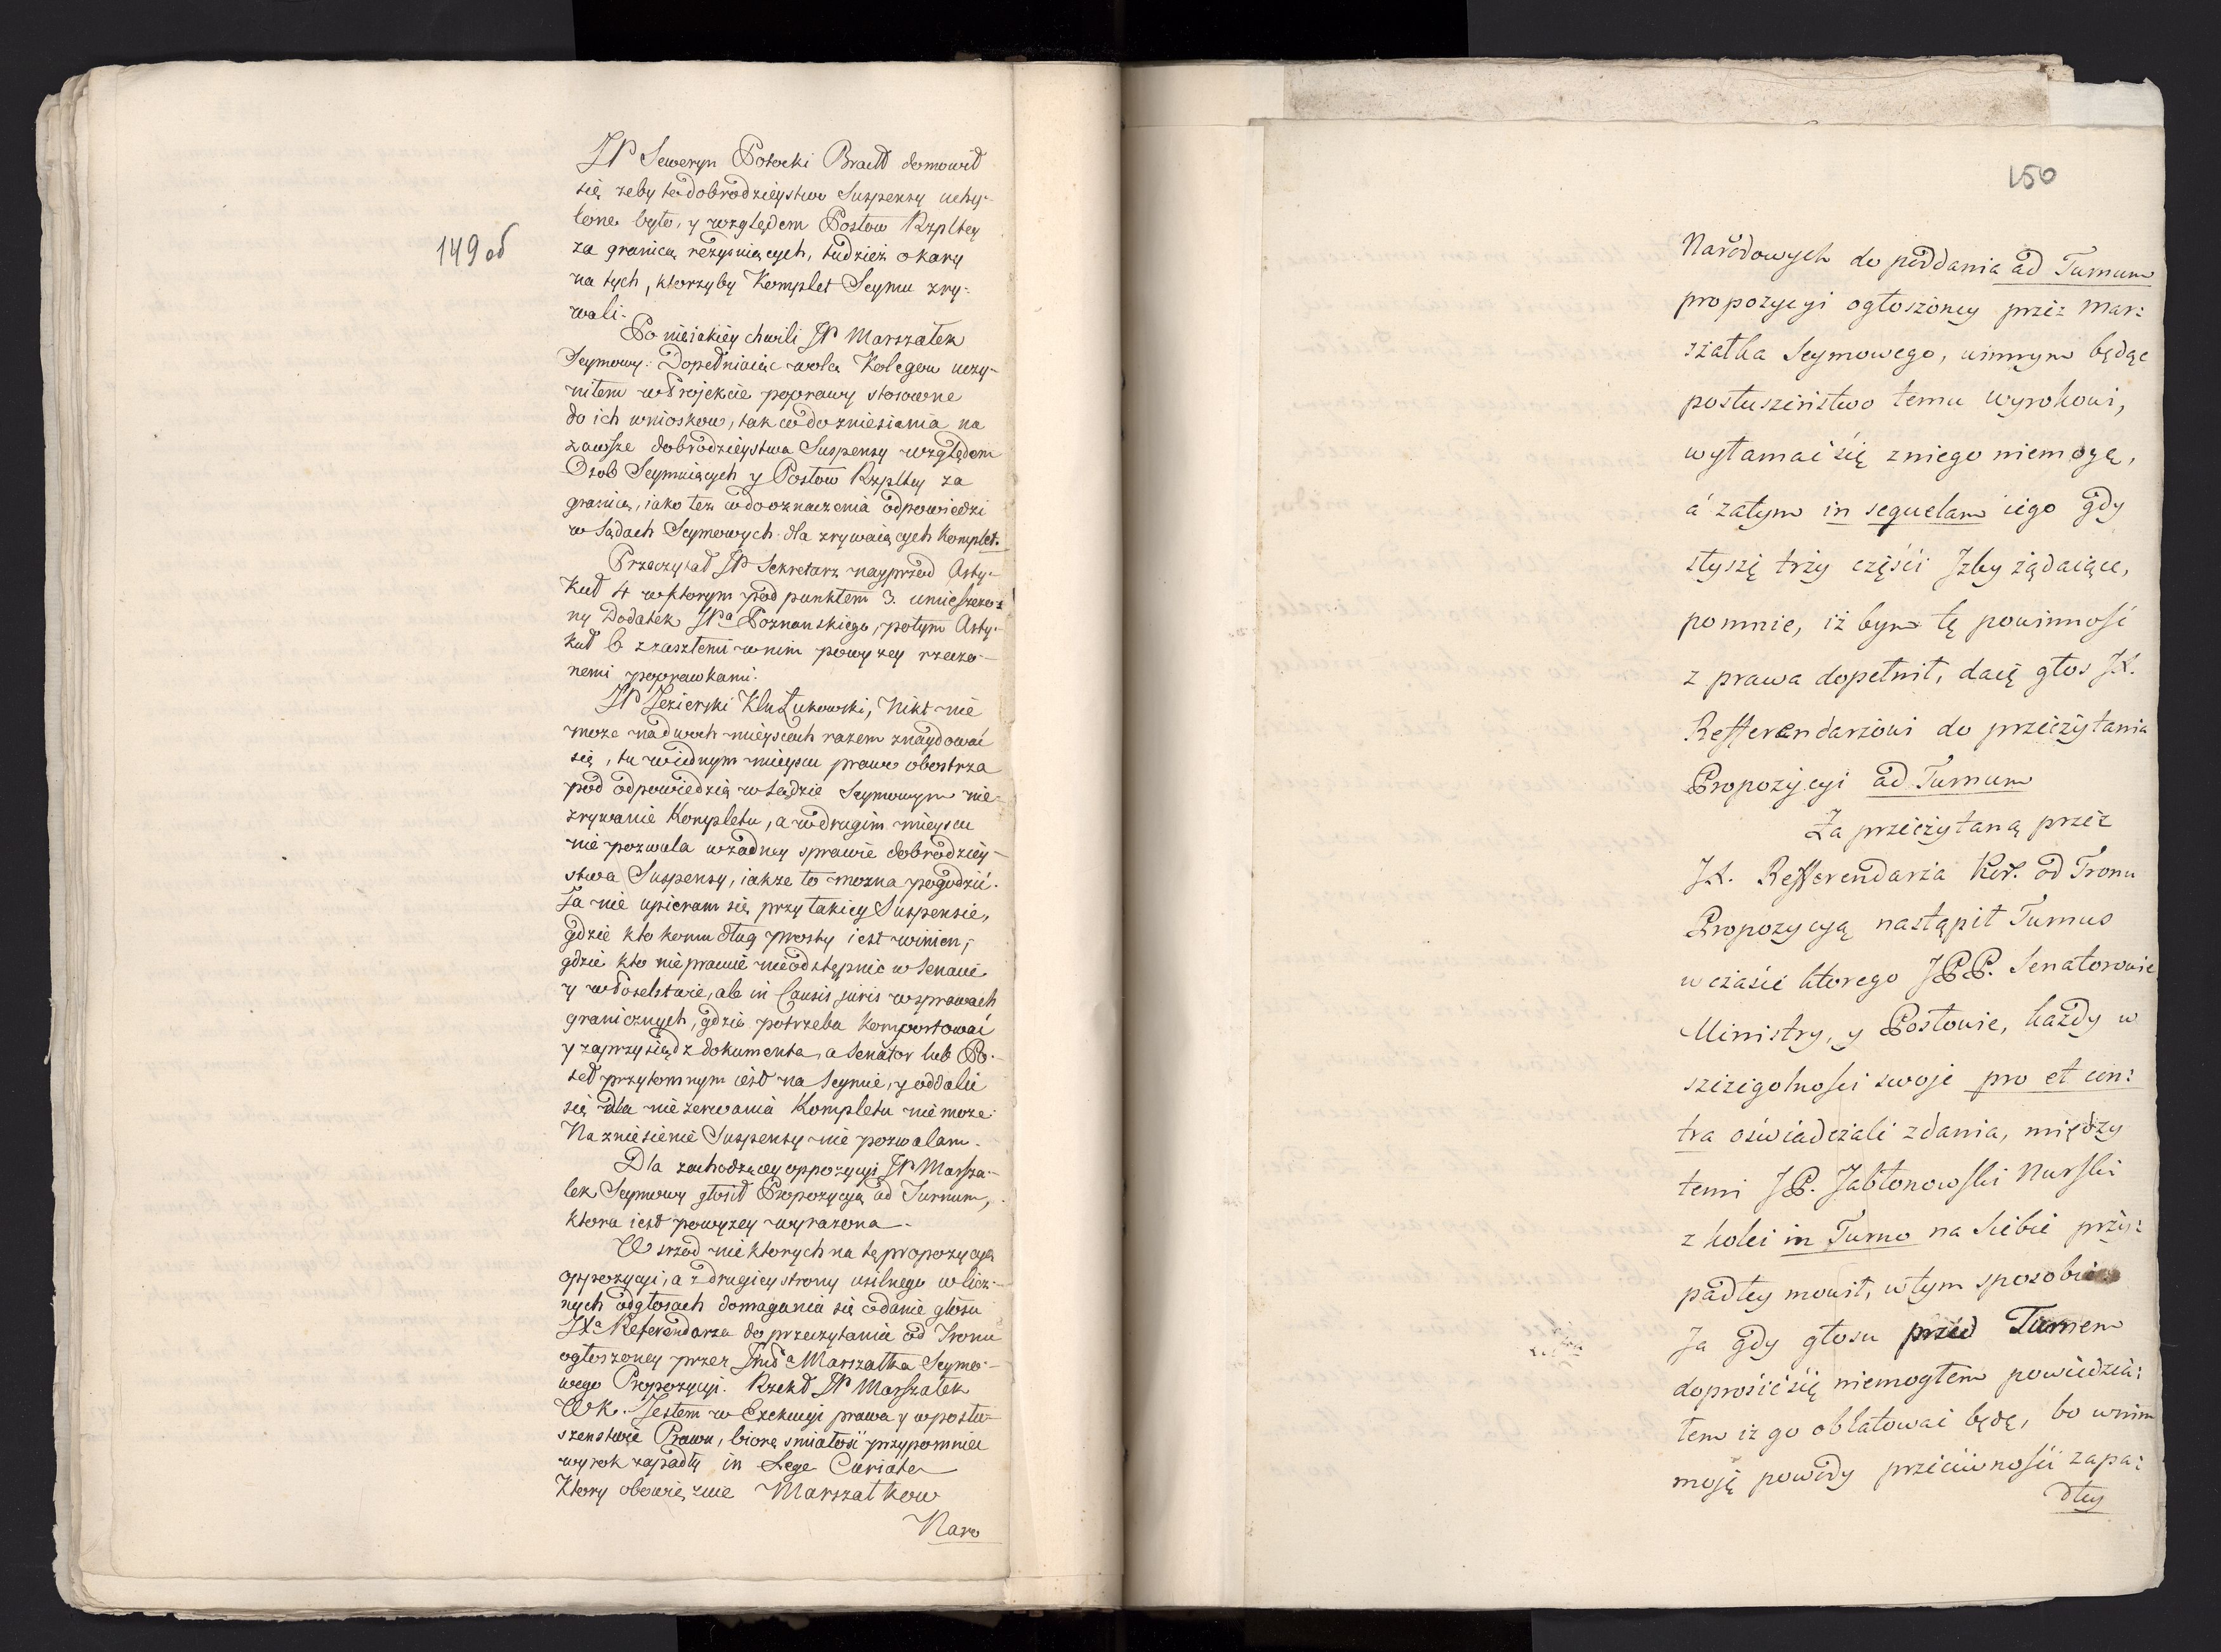 149 об
JP Seweryn Potocki Bracł domowił
się żeby to dobrodzieystwo Suspensy uchy-
lone było, y względem Posłow Rzpltey
za granicą rezyduiących, tudzież o kary
na tych, ktorzyby Komplet Seymu zry-
wali.
Po nieiakiey chwili JP Marszałek
Seymowy: Dopełniaiąc wolą Kolegow uczy-
niłem w Projekcie poprawy stosowne
do ich wnioskow, tak co do zniesienia na
zawsze dobrodzieystwa Suspensy względem
Osob Seymuiących y Posłow Rzpltey za
granicą, iako też co do oznaczenia odpowiedzi
w Sądach Seymowych dla zrywaiących Komplet.
Przeczytał JP Sekretarz nayprzod Arty-
kuł 4 w ktorym pod punktem 3. umieszczo-
ny Dodatek JPa Poznanskiego, potym Arty-
kuł 6 z zaszłemi w nim powyzey rzeczo-
nemi poprawkami.
JP Jezierski Klu Łukowski, Nikt nie
moze na dwoch mieyscach razem znaydować
się, tu w iednym mieyscu prawo obostrza
pod odpowiedzią w Sądzie Seymowym nie
zrywanie Kompletu, a w drugim mieyscu
nie pozwala w żadney sprawie dobrodziey-
stwa Suspensy, iakże to można pogodzić.
Ja nie upieram się przy takiey Suspensie,
gdzie kto komu dług prosty iest winien,
gdzie kto nieprawnie nieodstępnie w Senacie
y w Poselstwie, ale in Causis juris w sprawach
granicznych, gdzie potrzeba komportować
y zaprzysiądz dokumenta, a Senator lub Po-
seł przytomnym iest na Seymie, y oddalić
się dla nie zerwania Kompletu nie może
Na zniesienie Suspensy nie pozwalam.
Dla zachodzącey oppozycyi JP Marsza-
łek Seymowy głosił Propozycyą ad Turnum,
ktora iest powyzey wyrażona.
W srzod niektorych na tę propozycyą
oppozycyi, a z drugiey strony usilnego w licz-
nych odgłosach domagania się o danie głosu
JXa Referendarza do przeczytania od Tronu
ogłoszoney przez Jmćda Marszałka Seymo-
wego Propozycyi. Rzekł JP Marszałek
WK. Jestem w Exekucyi prawa y w posłu-
szenstwie Prawu, biorę smiałość przypomnieć
wyrok zapadły in Lege Curiata
Ktory obowięzuie Marszałkow
Naro

150
Narodowych do poddania ad Turnum
propozycyi ogłoszoney przez Mar:
szałka Seymowego, winnym będąc
posłuszeństwo temu wyrokowi,
wyłamać się z niego niemogę,
á zatym in sequelam iego gdy
słyszę trzy części Jzby żądaiące,
pomnie, iż bym tę powinność
z prawa dopełnił, daię głos JX.
Refferendarzowi do przeczytania
Propozycyi ad Turnum
Za przeczytaną przez
JX. Refferendarza Kor. od Tronu
Propozycyą nastąpił Turnus
w czasie ktorego JPP. Senatorowie
Ministry, y Posłowie, każdy w
szczegolności swoje pro et con:
tra oświadczali zdania, między
temi JP. Jabłonowski Nurski
z kolei in Turno na siebie przy:
padłey mowił, w tym sposobie
Ja gdy głosu przed Turnem
doprosić się niemogłem powiedzia:
łem iż go oblatować będę, bo w nim
moię powody przeciwności zapa:
dłey